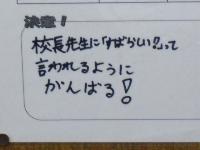 決意！
校長先生に「すばらしい！」って
言われるように
がんばる！